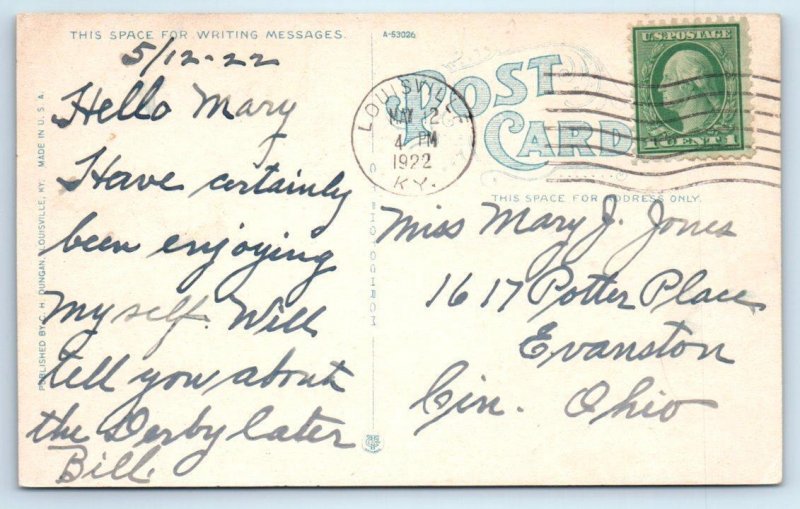 THIS SPACE FOR WRITING MESSAGES.
A-53026
5/12-22
Hello Mary
Have certainly
been enjoying
myself. Will
tell you about
the Derby later
Bill
PUBLISHED BY C. H. DUNGAN, LOUISVILLE, KY. MADE IN U. S. A.
POST
CARD
LOUISVILLE
MAY 12
4 PM
1922
KY.
U.S. POSTAGE
1 CENT 1
THIS SPACE FOR ADDRESS ONLY.
Miss Mary J. Jones
1617 Potter Place
Evanston
Cin. Ohio